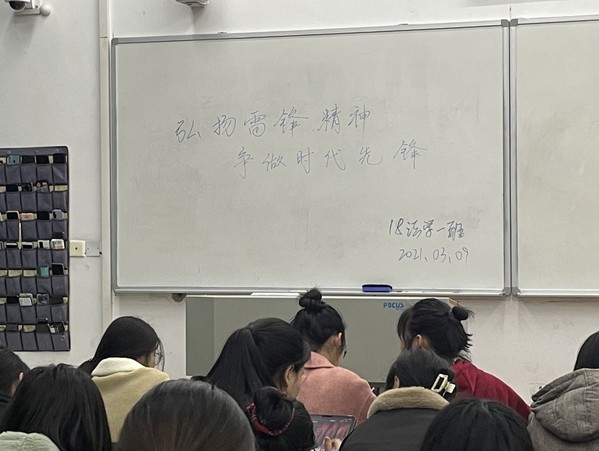 弘扬雷锋精神
争做时代先锋
18法学一班
2021.03.09
FOCUS